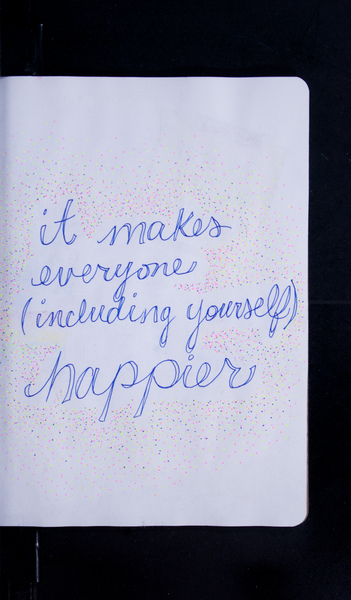 it makes
everyone
(including yourself)
happier